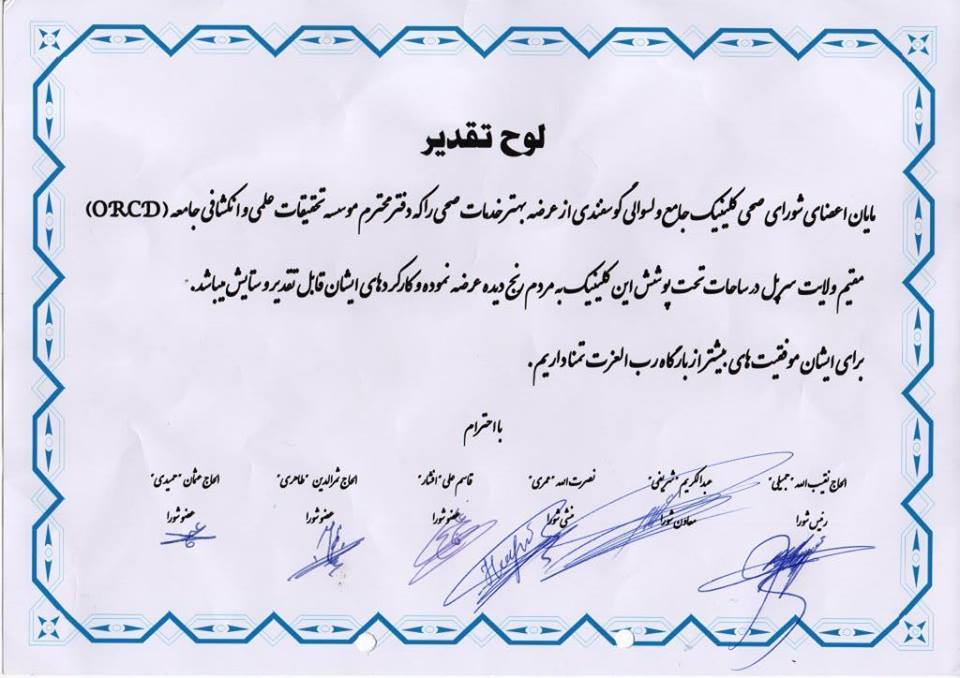 لوح تقدیر
مایان اعضای شورای صحی کلینیک جامع ولسوالی گوسفندی از عرضه بهتر خدمات صحی را که دفتر محترم موسسه تحقیقات علمی و انکشافی جامعه (ORCD)
مقیم ولایت سرپل در ساحات تحت پوشش این کلینیک به مردم رنج دیده عرضه نموده و کارکردهای ایشان قابل تقدیر و ستایش میباشد.
برای ایشان موفقیت های بیشتر از بارگاه رب العزت تمنا داریم.
با احترام
الحاج نقیب الله "جمیلی" عبدالکریم "شریفی" نصرت الله "عمری" قاسم علی "افشار" الحاج شمرالدین "طاهری" الحاج عثمان "حمیدی"
رئیس شورا معاون شورا منشی شورا عضو شورا عضو شورا عضو شورا